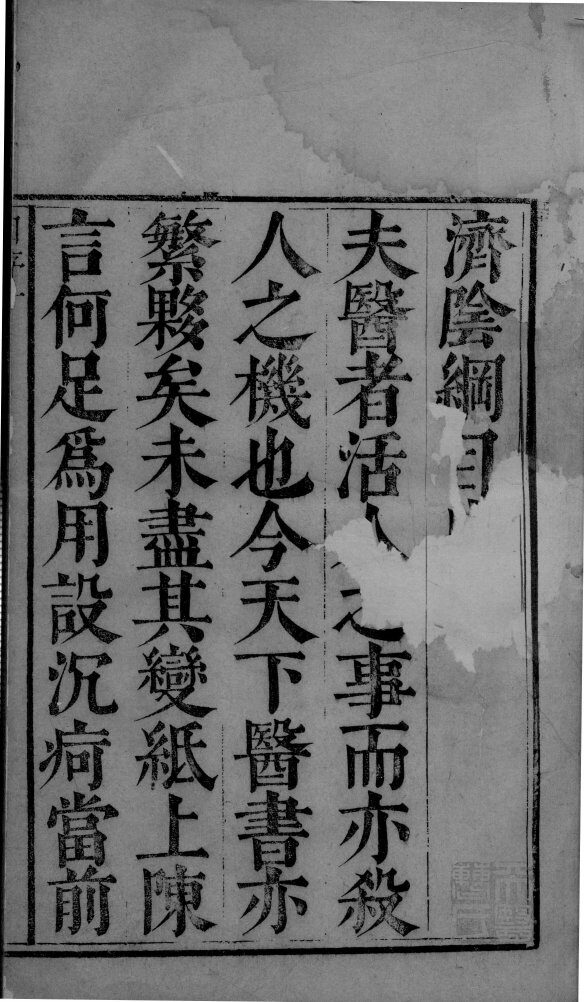 濟陰綱目
夫醫者活人之事而亦殺
人之機也今天下醫書亦
繁夥矣未盡其變紙上陳
言何足爲用設沉疴當前